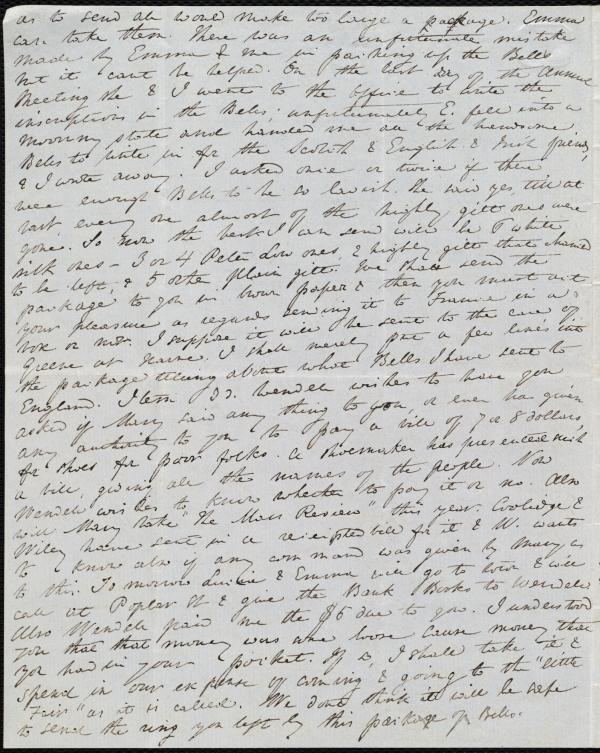 as to send all would make too large a package. Emma
can take them. There was an unfortunate mistake
made by Emma & me in packing up the Bells
but it can't be helped. On the last day of the Annual
Meeting she & I went to the office to write the
inscriptions in the Bells; unfortunately E. fell into a
moony state and handed me all the handsome
Bells to write in for the Scotch & English & Irish friends,
& I wrote away. I asked once or twice if there
were enough Bells to be so lavish. She said yes, till at
last every one almost of the highly gilt ones were
gone. So now the best I can send will be 7 white
silk ones — 3 or 4 Peter Low ones, 2 highly gilt that chanced
to be left, & 5 other plain gilt. We shall send the
package to you in brown paper & then you must act
your pleasure as regards sending it to France in a
box or not. I suppose it will be sent to the care of
Greene at Havre. I shall merely put a few lines into
the package telling about what Bells I have sent to
England. Item 22. Wendell wishes to have you
asked if Mary said any thing to you or even has given
any authority to you to pay a bill of 7 or 8 dollars,
for shoes for poor folks. A shoemaker has presented such
a bill, giving all the names of the people. Now
Wendell wishes to know whether to pay it or no. Also
will Mary take "The Mass Review" this year. Coolidge &
Wiley have sent in a receipted bill for it & W. wants
to know also if any command was given by Mary as
to this. To morrow & Emma will go to town & will
call at Poplar St & give the Bank Books to Wendell
Also Wendell paid me the $5 due to you. I understood
you that that money was some loose Cause money that
you had in your pocket. If so, I shall take it &
spend in our expense of coming & going to the "little
Fair" as it is called. We dont think it will be safe
to send the ring you left by this package of Bells.